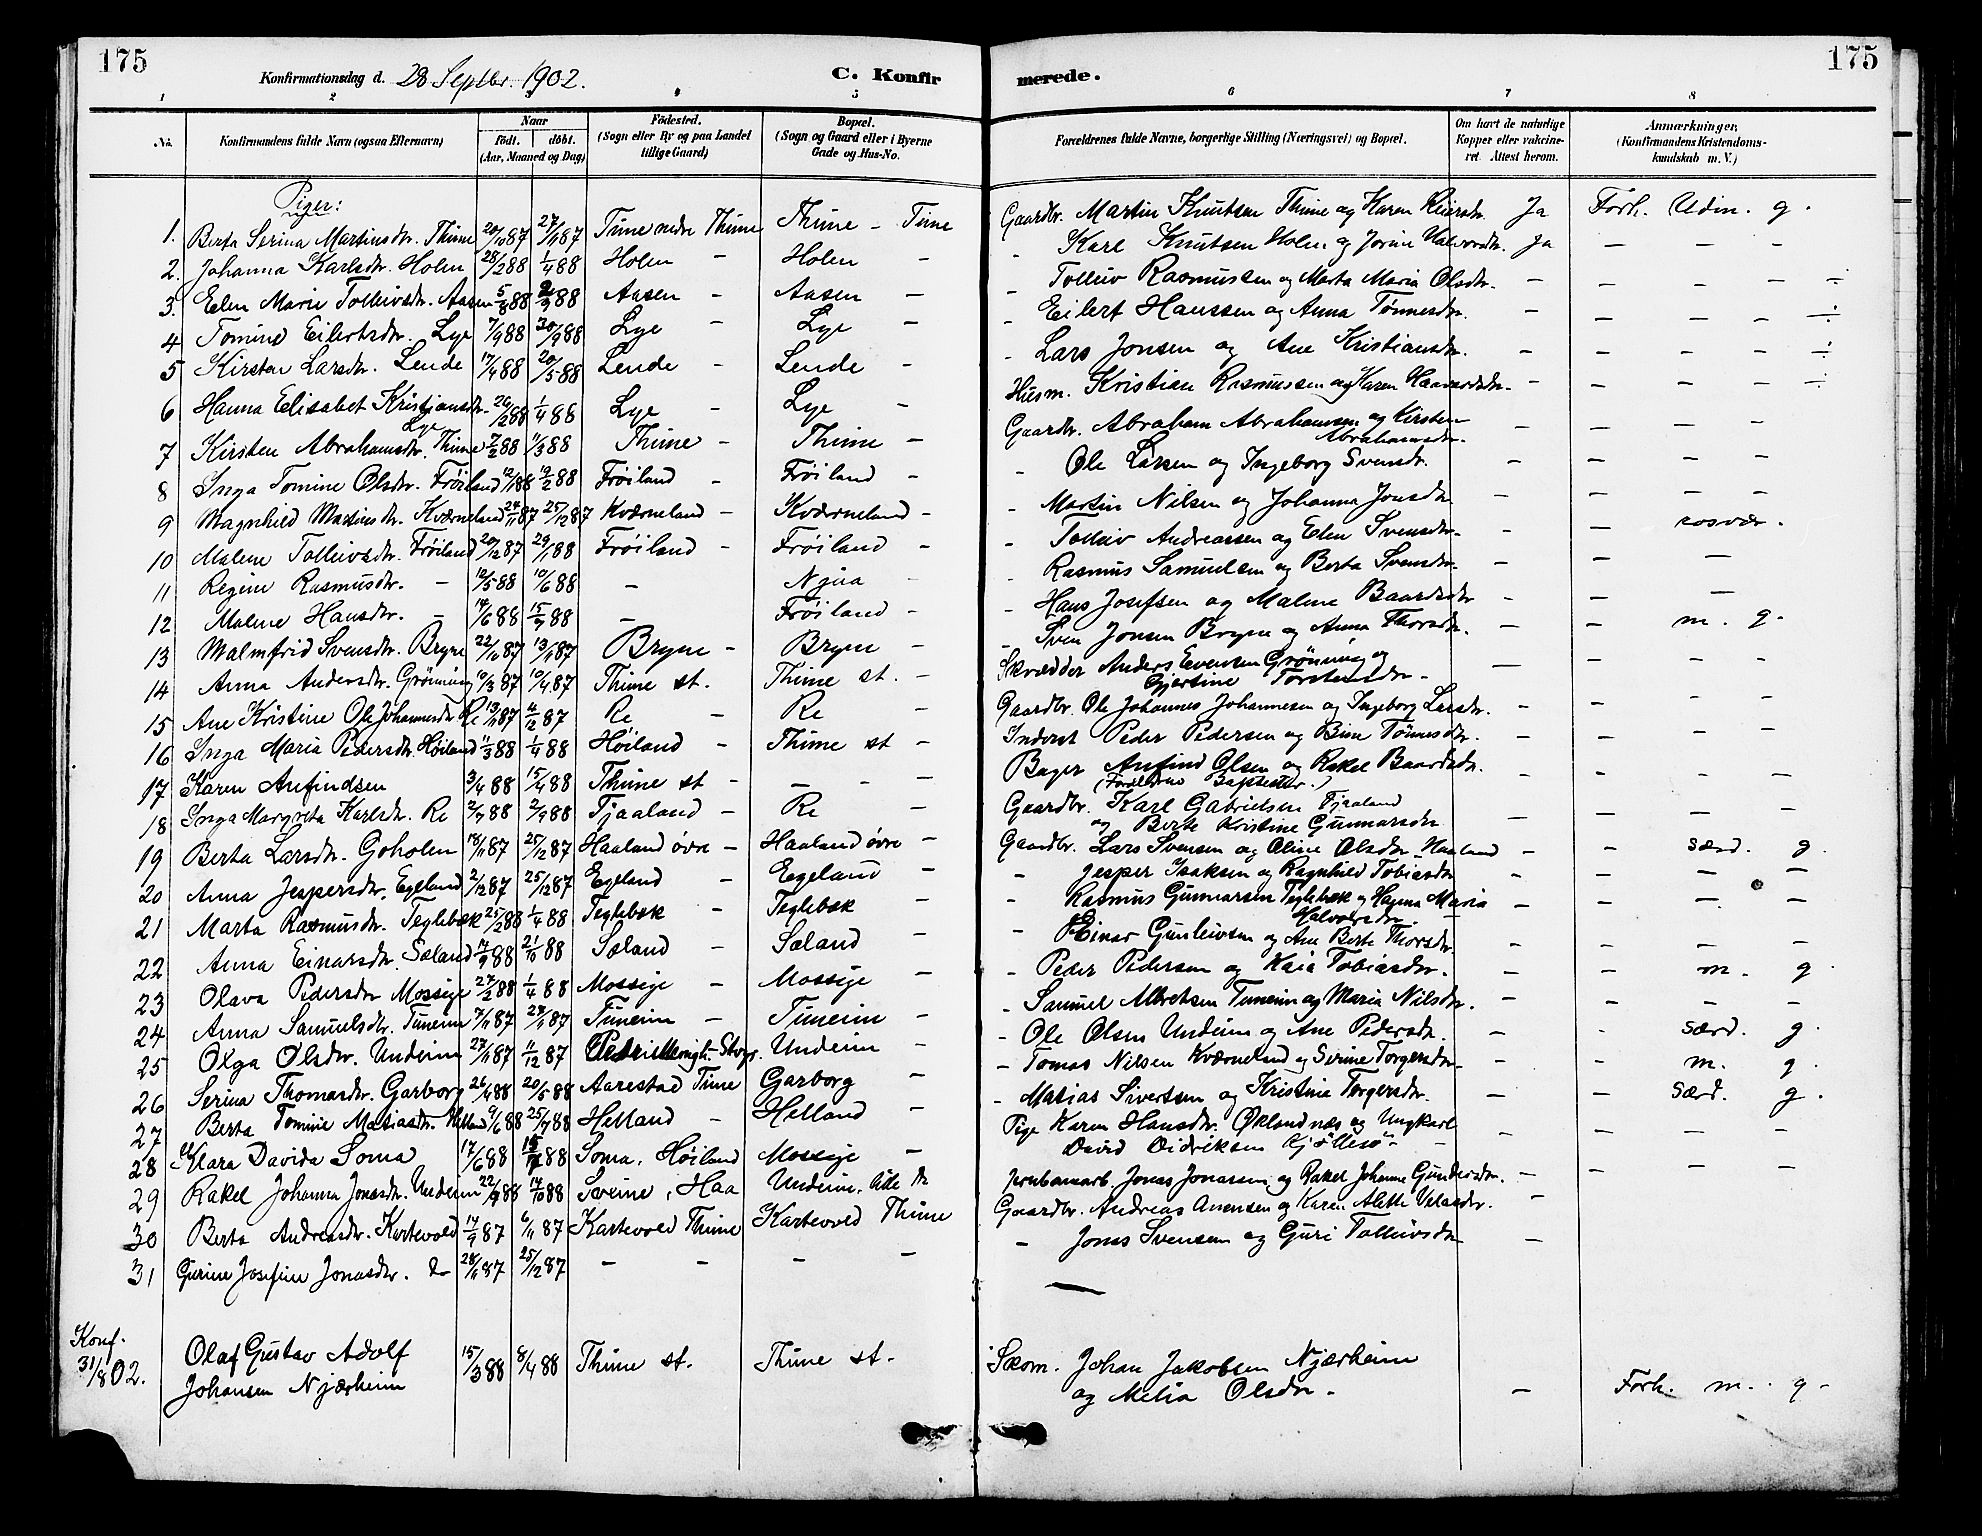 175
175
Konfirmationsdag d. 28 Septbr. 1902.
C. Konfir
merede.
1 2 3 4 5 6 7 8
No.
Konfirmandens fulde Navn (ogsaa Efternavn)
Naar
födt. döbt.
(Aar, Maaned og Dag)
Födested.
(Sogn eller By og paa Landet
tillige Gaard)
Bopæl.
(Sogn og Gaard eller i Byerne
Gade og Hus-No.
Forældrenes fulde Navne, borgerlige Stilling (Næringsvei) og Bopæl.
Om havt de naturlige
Kopper eller vakcine-
ret. Attest herom.
Anmærkninger,
(Konfirmandens Kristendoms-
kundskab m. V.)
Piger:
1. Berta Serina Martinsdtr. Thime 20/10 87 27/11 87 Time nedre Thime Thime - Time Gaardbr. Martin Knutsen Thime og Karen Reiersdr. Ja Forh. Udm. g.
2. Johanna Karlsdtr. Holen 28/2 88 1/4 88 Holen - Holen - - Karl Knutsen Holen og Jorine Halvorsdtr. Ja - - -
3. Elen Marie Tolleivsdtr. Aasen 5/8 88 2/9 88 Aasen - Aasen - - Tolleiv Rasmussen og Marta Maria Olsdtr. - - - - -
4 Tomine Eilertsdtr. Lye 7/9 88 30/9 88 Lye - Lye - - Eilert Hanssen og Anna Tønnesdtr. - - - - -
5 Kirsten Larsdtr. Lende 17/4 88 20/5 88 Lende - Lende - - Lars Jonsen og Ane Kristiansdtr. - - - - -
6 Hanna Elisabet Kristiansdtr. Lye 26/2 88 1/4 88 Lye - Lye - Husm. Kristian Rasmussen og Karen Haavardsdtr. - - - - -
7 Kirsten Abrahamsdtr. Thime 7/2 88 11/3 88 Thime - Thime - Gaardbr. Abraham Abrahamsen og Kirsten
Abrahamsdtr. - - - -
8 Inga Tomine Olsdtr. Frøiland 12/1 88 19/2 88 Frøiland - Frøiland - - Ole Larsen og Ingeborg Svensdtr. - - - -
9 Magnhild Martinsdtr. Kværneland 24/11 87 25/12 87 Kværneland - Kværneland - - Martin Nilsen og Johanna Jonsdtr - - - -
10 Malene Tolleivsdtr. Frøiland 20/12 87 29/1 88 Frøiland - Frøiland - - Tolleiv Andreassen og Elen Svensdtr. - - rosvær.
11 Regine Rasmusdtr. - 12/5 88 10/6 88 - Njaa - - Rasmus Samuelsen og Berta Svensdtr. - - -
12 Malene Hansdtr. - 14/6 88 15/7 88 - Frøiland - - Hans Josefsen og Malene Baardsdtr - - -
13 Malmfrid Svensdtr. Bryne 22/10 87 13/11 87 Bryne - Bryne - - Sven Jonsen Bryne og Anna Thorsdtr. - - m. g.
14 Anna Andersdtr. Grönning 10/3 87 10/4 87 Thime st. Thime st. - Skrædder Anders Evensen Grönning og
Gjertine Torstensdtr - - - - -
15 Ane Kristine Ole Johannesdtr Re 13/11 87 4/12 87 Re - Re - Gaardbr. Ole Johannes Johannesen og Ingeborg Larsdtr. - - - -
16 Inga Maria Pedersdtr. Høiland 11/3 88 1/4 88 Høiland - Thime st - Inderst Peder Pedersen og Bine Tønnesdtr. - - - -
17 Karen Anfindsen 3/4 88 15/4 88 Thime st - - - - Bager Anfind Olsen og Rakel Baardsdtr.
(Forældrene Baptister.) - - - -
18 Inga Margreta Karlsdtr. Re 2/7 88 2/9 88 Tjaaland - Re - Gaardbr. Karl Gabrielsen Tjaaland
og Berte Kristine Gunnarsdtr - - - -
19 Berta Larsdtr. Goholen 18/11 87 25/12 87 Haaland øvre - Haaland øvre - Gaardbr. Lars Svensen og Oline Olsdtr. Haaland - - Særd. g.
20 Anna Jespersdtr. Egeland 2/12 87 25/12 87 Egeland - Egeland - - Jesper Isaksen og Ragnhild Tobiasdtr - - - -
21 Marta Rasmusdtr. Teglebæk 25/2 88 1/4 88 Teglebæk - Teglebæk - - Rasmus Gunnarsen Teglebæk og Hanna Maria
Halvorsdtr. - - - -
22 Anna Einarsdtr. Sæland 17/9 88 21/10 88 Sæland - Sæland - - Einar Gunleivsen og Ane Berte Thorsdtr - - - -
23 Olava Pedersdtr Mossige 27/2 88 1/4 88 Mossige - Mossige - - Peder Pedersen og Kaia Tobiasdtr. - - m. g.
24 Anna Samuelsdtr. Tuneim 7/11 87 27/11 87 Tuneim - Tuneim - - Samuel Albretsen Tuneim og Maria Nilsdtr. - - - -
25 Olga Olsdtr. Undeim 27/11 87 11/12 87 Undeim - - Ole Olsen Undeim og Ane Pedersdtr. - - Særd. g.
26 Serina Thomasdtr. Garborg 26/4 88 20/5 88 Aarestad Time Garborg - - Tomas Nilsen Kværneland og Serine Torgersdtr - - m. g.
27 Berta Tomine Matiasdtr. Helland 9/6 88 25/7 88 Helland - Helland - - Matias Sivertsen og Kristine Torgersdtr. - - Særd. g.
28 Klara Davida Soma 17/6 88 15/7 88 Soma, Høiland Mossige - Pige Karen Hansdtr. Øklandnæs og Ungkarl
David Didriksen - - - -
29 Rakel Johanna Jonasdtr. Undeim 22/9 88 14/10 88 Sveine, Haa Undeim, Jernbanearb. Jonas Jonassen og Rakel Johanne Gundersdtr. - - - -
30 Berta Andreasdtr. Kartevold 17/9 87 6/11 87 Kartevold Thime Kartevold Thime Gaardbr. Andreas Anensen og Karen Alette Velasdtr. -
31 Gurine Josefine Jonasdtr. do 28/11 87 25/12 87 - - - - - Jonas Svensen og Guri Tolleivsdtr -
Konf.
31/8 02. Olaf Gustav Adolf
Johansen Njærheim 15/3 88 8/4 88 Thime st. Thime st. Skom. Johan Jakobsen Njærheim
og Melia Olsdtr - - Forh. m. g.